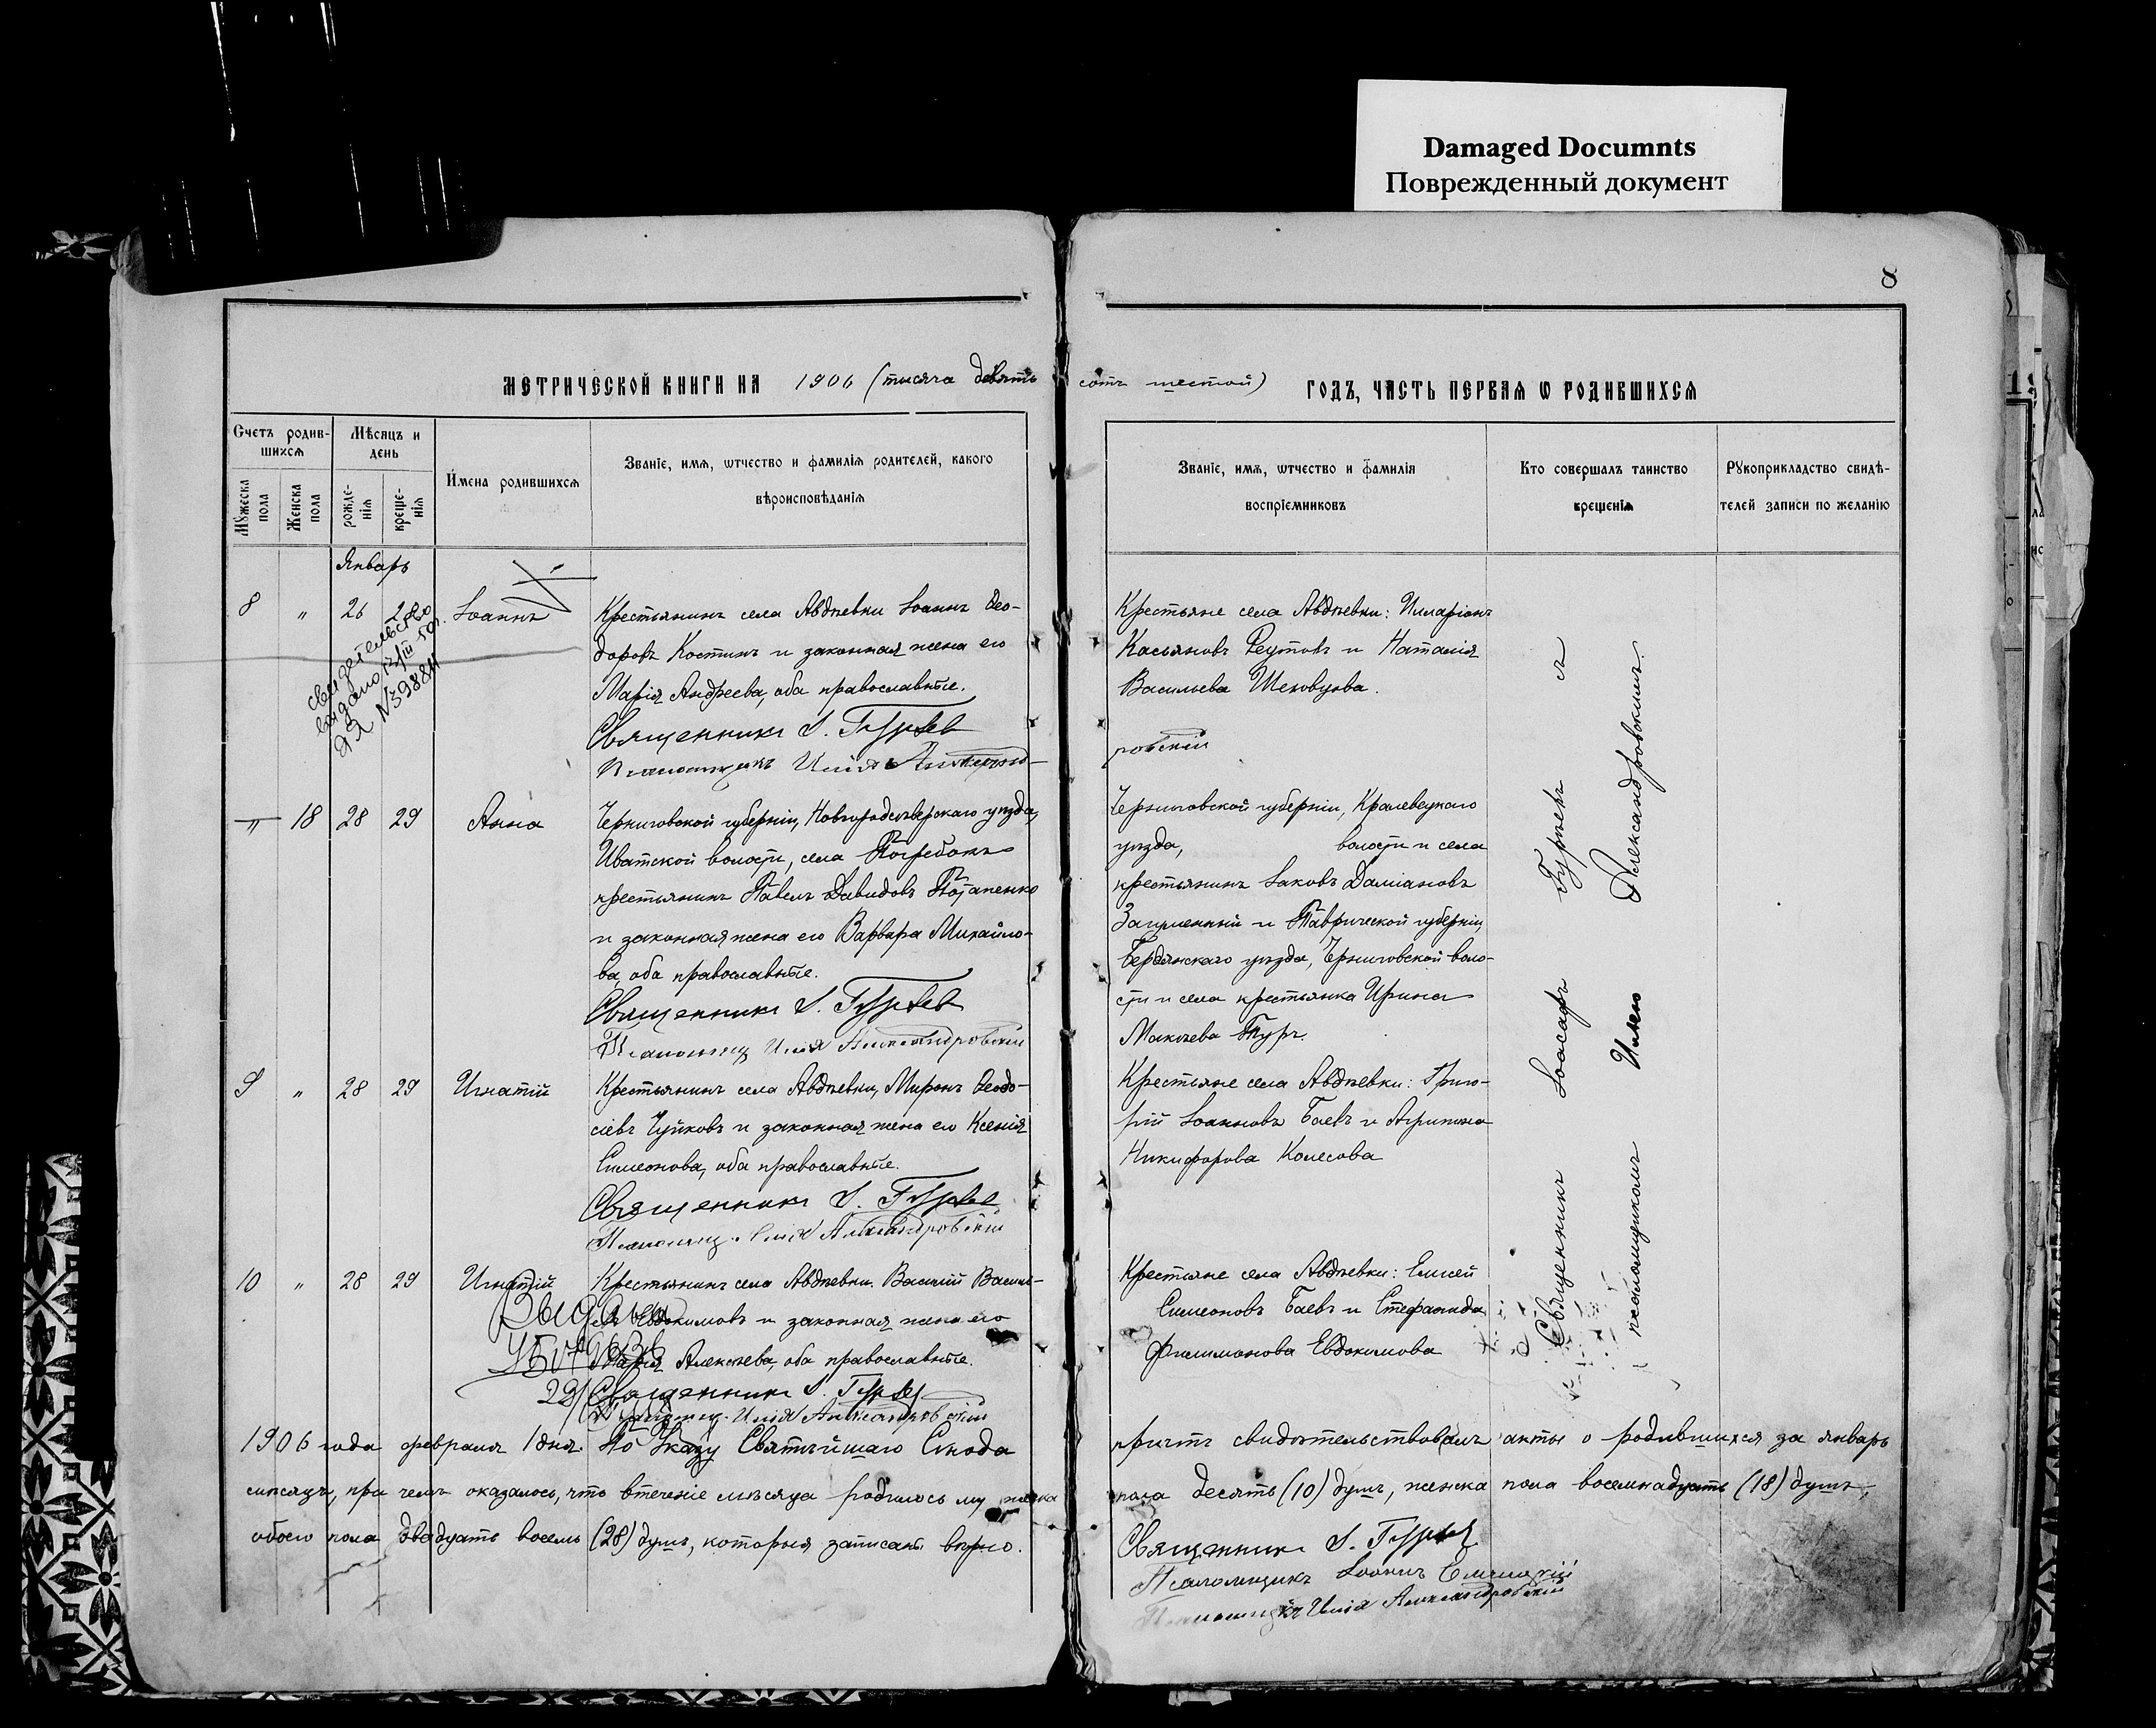 Damaged Documnts
Поврежденный документ
8
МЕТРИЧЕСКОЙ КНИГИ НА 1906 (тысяча девять сотъ шестой) ГОДЪ, ЧАСТЬ ПЕРВАЯ Ѡ РОДИВШИХСЯ
Счетъ родив-
шихся
Мѣсяцъ и
день
Мужеска пола
Женска пола
рожде-
нія
креще-
нія
Имена родившихся
Званіе, имя, ѡтчество и фамилія родителей, какого
вѣроисповѣданія
Званіе, имя, ѡтчество и фамилія
воспріемниковъ
Кто совершалъ таинство
крещенія
Рукоприкладство свидѣ-
телей записи по желанію
Январь
8 " 26 28 Іоаннъ
Крестьянинъ села Авдѣевки Іоаннъ Ѳео-
доровъ Костинъ и законная жена его
Марія Андреева, оба православные.
Священникъ І. Гурьев
Псаломщикъ Илія Александро-
Крестьяне села Авдѣевки: Иларіонъ
Касьяновъ Реутовъ и Наталія
Васильева Шеховцова.
ровскій
свидетельство
выдано
" 18 28 29 Анна
Черниговской губерніи, Новгородсѣверскаго уѣзда,
Иватской волости, села Погребокъ
крестьянинъ Павелъ Давидовъ Потапенко
и законная жена его Варвара Михайло-
ва, оба православные.
Священникъ І. Гурьев
Псаломщ Илія Александровскій
Черниговской губерніи, Кролевецкаго
уѣзда, волости и села
крестьянинъ Іаковъ Даміановъ
и Таврической губерніи,
Бердянскаго уѣзда, Черниговской воло-
сти и села крестьянка Ирина
Мокѣева Туръ.
9 " 28 29 Игнатій
Крестьянинъ села Авдѣевки, Миронъ Ѳеодо-
сіевъ Чуйковъ и законная жена его Ксенія
Симеонова, оба православные.
Священникъ І. Гурьев
Псаломщ. Илія Александровскій
Крестьяне села Авдѣевки: Григо-
рій Іоанновъ Баевъ и Агрипина
Никифорова Колесова
10 " 28 29 Игнатій
Крестьянинъ села Авдѣевки Василій Василь-
евъ Евдокимовъ и законная жена его
Марія Алексѣева, оба православные.
Священникъ І. Гурьев
Псаломщ. Илія Александровскій
Выдан
Крестьяне села Авдѣевки: Елисей
Симеоновъ Баевъ и Стефанида
Филимонова Евдокимова
Священникъ Іоасафъ Гурьевъ съ
псаломщикомъ Иліею Александровскимъ.
1906 года февраля 1 дня. По Указу Святѣйшаго Синода причтъ свидѣтельствовалъ акты о родившихся за январь
мѣсяцъ, при чемъ оказалось, что втеченіе мѣсяца родилось мужска пола десять (10) душъ, женска пола восемнадцать (18) душъ,
обоего пола двадцать восемь (28) душъ, которыя записаны вѣрно.
Священникъ І. Гурьев
Псаломщикъ Іоаннъ
Псаломщикъ Илія Александровскій